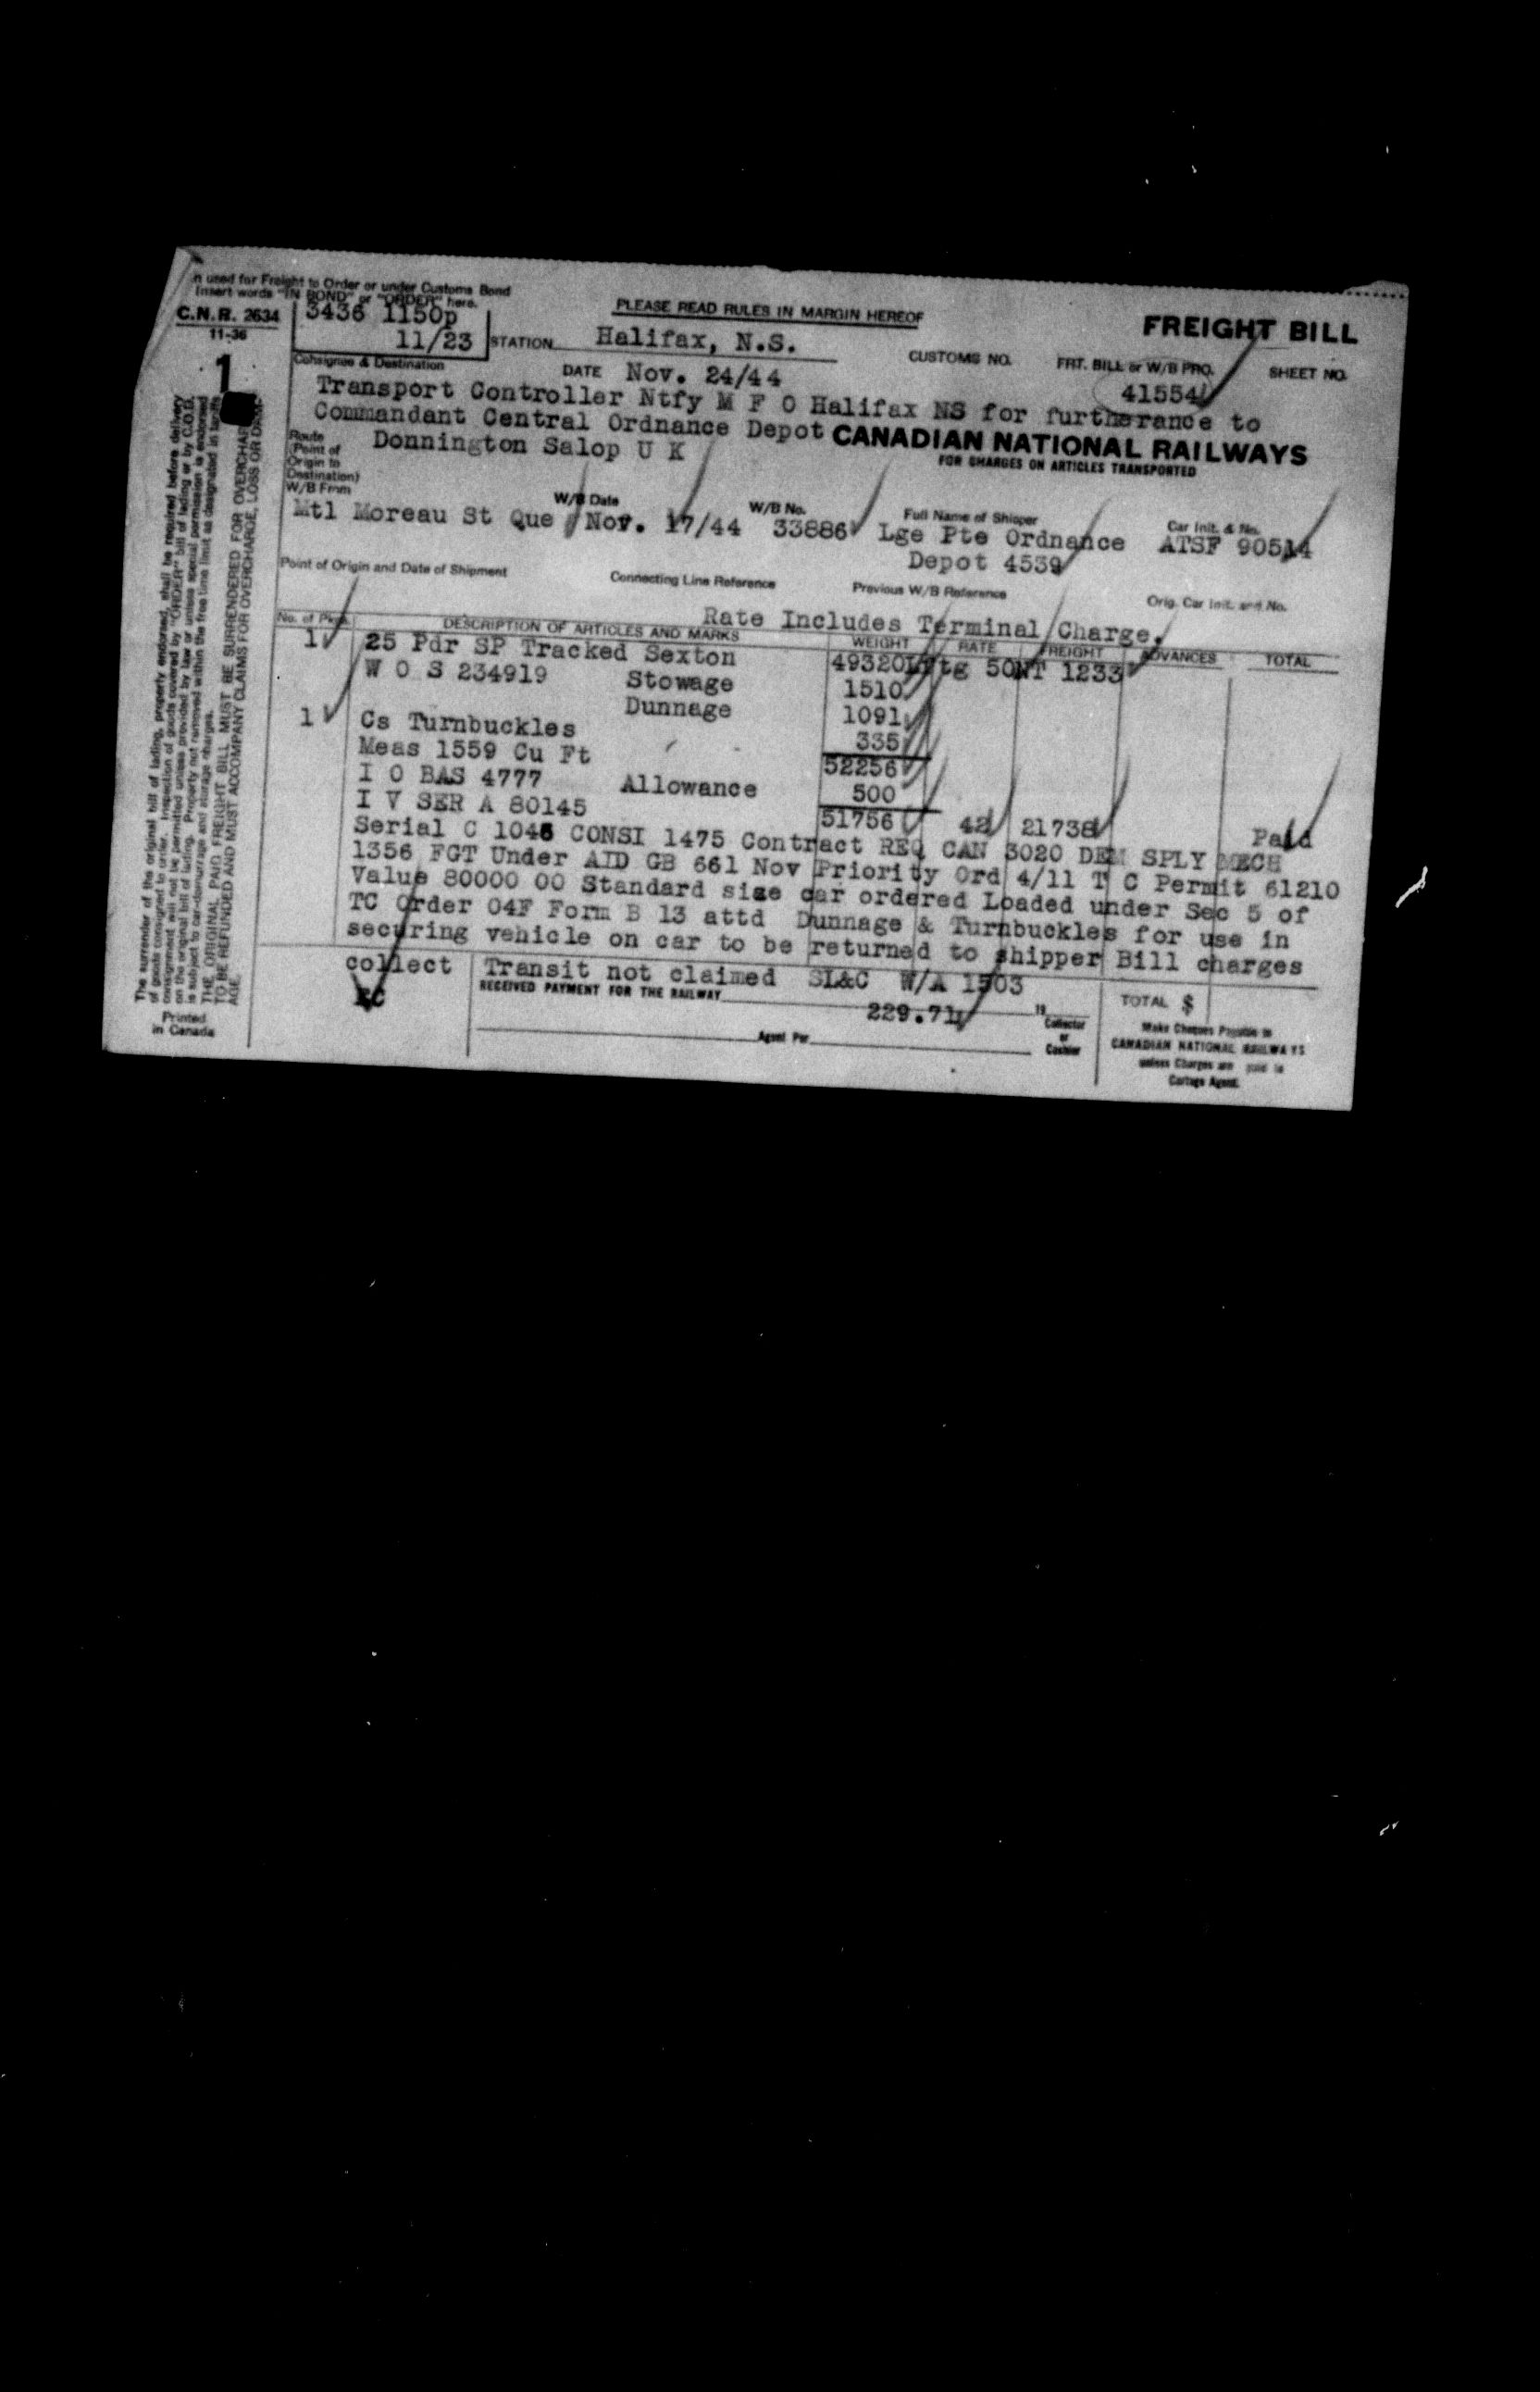 n used for Freight to Order or under Customs Bond
Insert words "IN BOND" or "ORDER" here.
C.N.R. 2634
11-36
3436 1150p
11/23
PLEASE READ RULES IN MARGIN HEREOF
FREIGHT BILL
STATION Halifax, N.S.
CUSTOMS NO.
FRT. BILL or W/B PRO.
SHEET NO.
1
Consignee & Destination
DATE Nov. 24/44
41554
Transport Controller Ntfy M F O Halifax NS for furtherance to
Commandant Central Ordnance Depot
CANADIAN NATIONAL RAILWAYS
Donnington Salop U K
FOR CHARGES ON ARTICLES TRANSPORTED
Route
(Point of
Origin to
Destination)
W/B From
W/B Date
W/B No.
Full Name of Shipper
Car Init. & No.
Mtl Moreau St Que Nov. 17/44 33886 Lge Pte Ordnance ATSF 90514
Depot 4539
Point of Origin and Date of Shipment
Connecting Line Reference
Previous W/B Reference
Orig. Car Init. and No.
Rate Includes Terminal Charge.
No. of Pkgs.
DESCRIPTION OF ARTICLES AND MARKS
WEIGHT
RATE
FREIGHT
ADVANCES
TOTAL
1 25 Pdr SP Tracked Sexton 49320 Lftg 50NT 1233
W O S 234919 Stowage 1510
Dunnage 1091
1 Cs Turnbuckles 335
Meas 1559 Cu Ft 52256
I O BAS 4777 Allowance 500
I V SER A 80145 51756 42 21738 Paid
Serial C 1046 CONSI 1475 Contract REQ CAN 3020 DEM SPLY MECH
1356 FGT Under AID GB 661 Nov Priority Ord 4/11 T C Permit 61210
Value 80000 00 Standard size car ordered Loaded under Sec 5 of
TC Order 04F Form B 13 attd Dunnage & Turnbuckles for use in
securing vehicle on car to be returned to shipper Bill charges
collect Transit not claimed SL&C W/A 1503
EC
RECEIVED PAYMENT FOR THE RAILWAY
229.71
19
Collector
or
Cashier
Agent Per
TOTAL $
Make Cheques Payable to
CANADIAN NATIONAL RAILWAYS
unless Charges are paid to
Cartage Agent.
The surrender of the original bill of lading, properly endorsed, shall be required before delivery
of goods consigned to order. Inspection of goods covered by "ORDER" bill of lading or by C.O.D.
consignment will not be permitted unless provided by law or unless special permission is endorsed
on the original bill of lading. Property not removed within the free time limit as designated in tariffs
is subject to car-demurrage and storage charges.
THE ORIGINAL PAID FREIGHT BILL MUST BE SURRENDERED FOR OVERCHAR
TO BE REFUNDED AND MUST ACCOMPANY CLAIMS FOR OVERCHARGE, LOSS OR DAM-
AGE.
Printed
in Canada